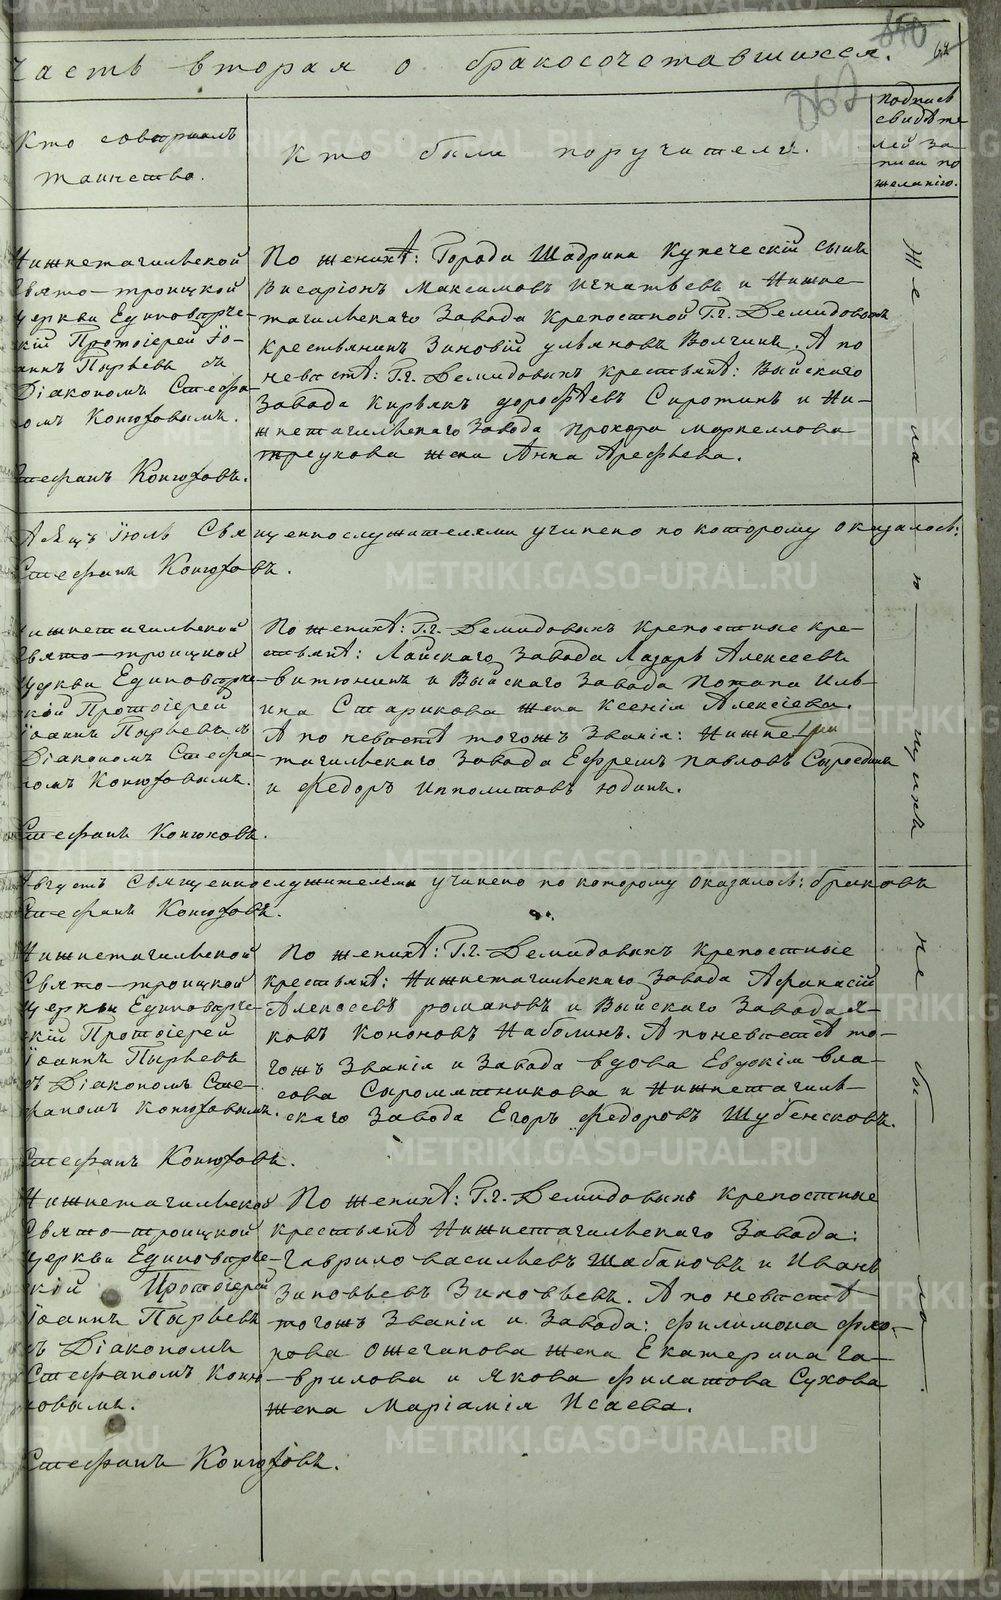 Часть вторая о бракосочетавшихся.
Кто совершалъ
таинство.
Кто были поручители.
подпись
свидѣте
лей за
писи по
желанію.
Нижнетагильской
Свято-троицкой
церкви Единовѣрче-
скій Протоіерей Іо-
аннъ Пырьевъ съ
Діакономъ Стефа-
номъ Конюховымъ.
Стефанъ Конюховъ.
По женихѣ: Города Шадрина Купеческій сынъ
Висаріонъ Максимовъ Игнатьевъ и Нижне-
тагильскаго Завода Крепостной Г.г. Демидовыхъ
крестьянинъ Зиновій ульяновъ Волчинъ. А по
невѣстѣ: Г.г. Демидовыхъ крестьянѣ: Выйскаго
Завода Кирьянъ дорофѣевъ Сиротинъ и Ни-
жнетагильскаго Завода прохора маркеллова
треухова жена Анна Арефьева.
мѣсяцъ Іюль Священнослужителями учинено по которому оказалось:
Стефанъ Конюховъ.
Нижнетагильской
Свято-троицкой
Церкви Единовѣрче-
скій Протоіерей
Іоаннъ Пырьевъ съ
Діакономъ Стефа-
номъ Конюховымъ.
Стефанъ Конюховъ.
По женихѣ: Г.г. Демидовыхъ крепостные кре-
стьянѣ: Лайскаго Завода Лазарь Алексеевъ
витюнинъ и Выйскаго Завода Потапа Иль-
ина Старикова жена Ксенія Алексіева.
А по невѣстѣ тогожъ Званія: Нижне
тагильскаго Завода Ефремъ павловъ Сыроедин
и Федоръ ипполитовъ юдинъ.
Августъ Священнослужителями учинено по которому оказалось: браковъ
Стефанъ Конюховъ.
Нижнетагильской
Свято-троицкой
Церкви Единовѣрче-
скій Протоіерей
Іоаннъ Пырьевъ
съ Діакономъ Сте-
фаномъ Конюховымъ.
Стефанъ Конюховъ.
По женихѣ: Г.г. Демидовыхъ крепостные
крестьянѣ: Нижнетагильскаго Завода Афанасій
Алексеевъ романовъ и Выйскаго Завода Я-
ковъ Кононовъ Наболинъ. А по невѣстѣ то-
гожъ Званія и Завода вдова Евдокія Вла-
сова Сыромятникова и Нижнетагиль-
скаго Завода Егоръ Федоровъ Шубенсковъ.
Нижнетагильской
Свято-троицкой
Церкви Единовѣрче-
скій Протоіерей
Іоаннъ Пырьевъ
съ Діакономъ
Стефаномъ Коню
ховымъ.
Стефанъ Конюховъ.
По женихѣ: Г.г. Демидовыхъ крепостные
крестьянѣ Нижнетагильскаго Завода:
Гаврило васильевъ Шабановъ и Иванъ
Зиновьевъ Зиновьевъ. А по невѣстѣ
тогожъ Званія и Завода: филимона фло-
рова Ожеганова жена Екатерина Га-
врилова и Якова филатова Сухова
жена Маріамія Исаева.
Желающихъ не было.